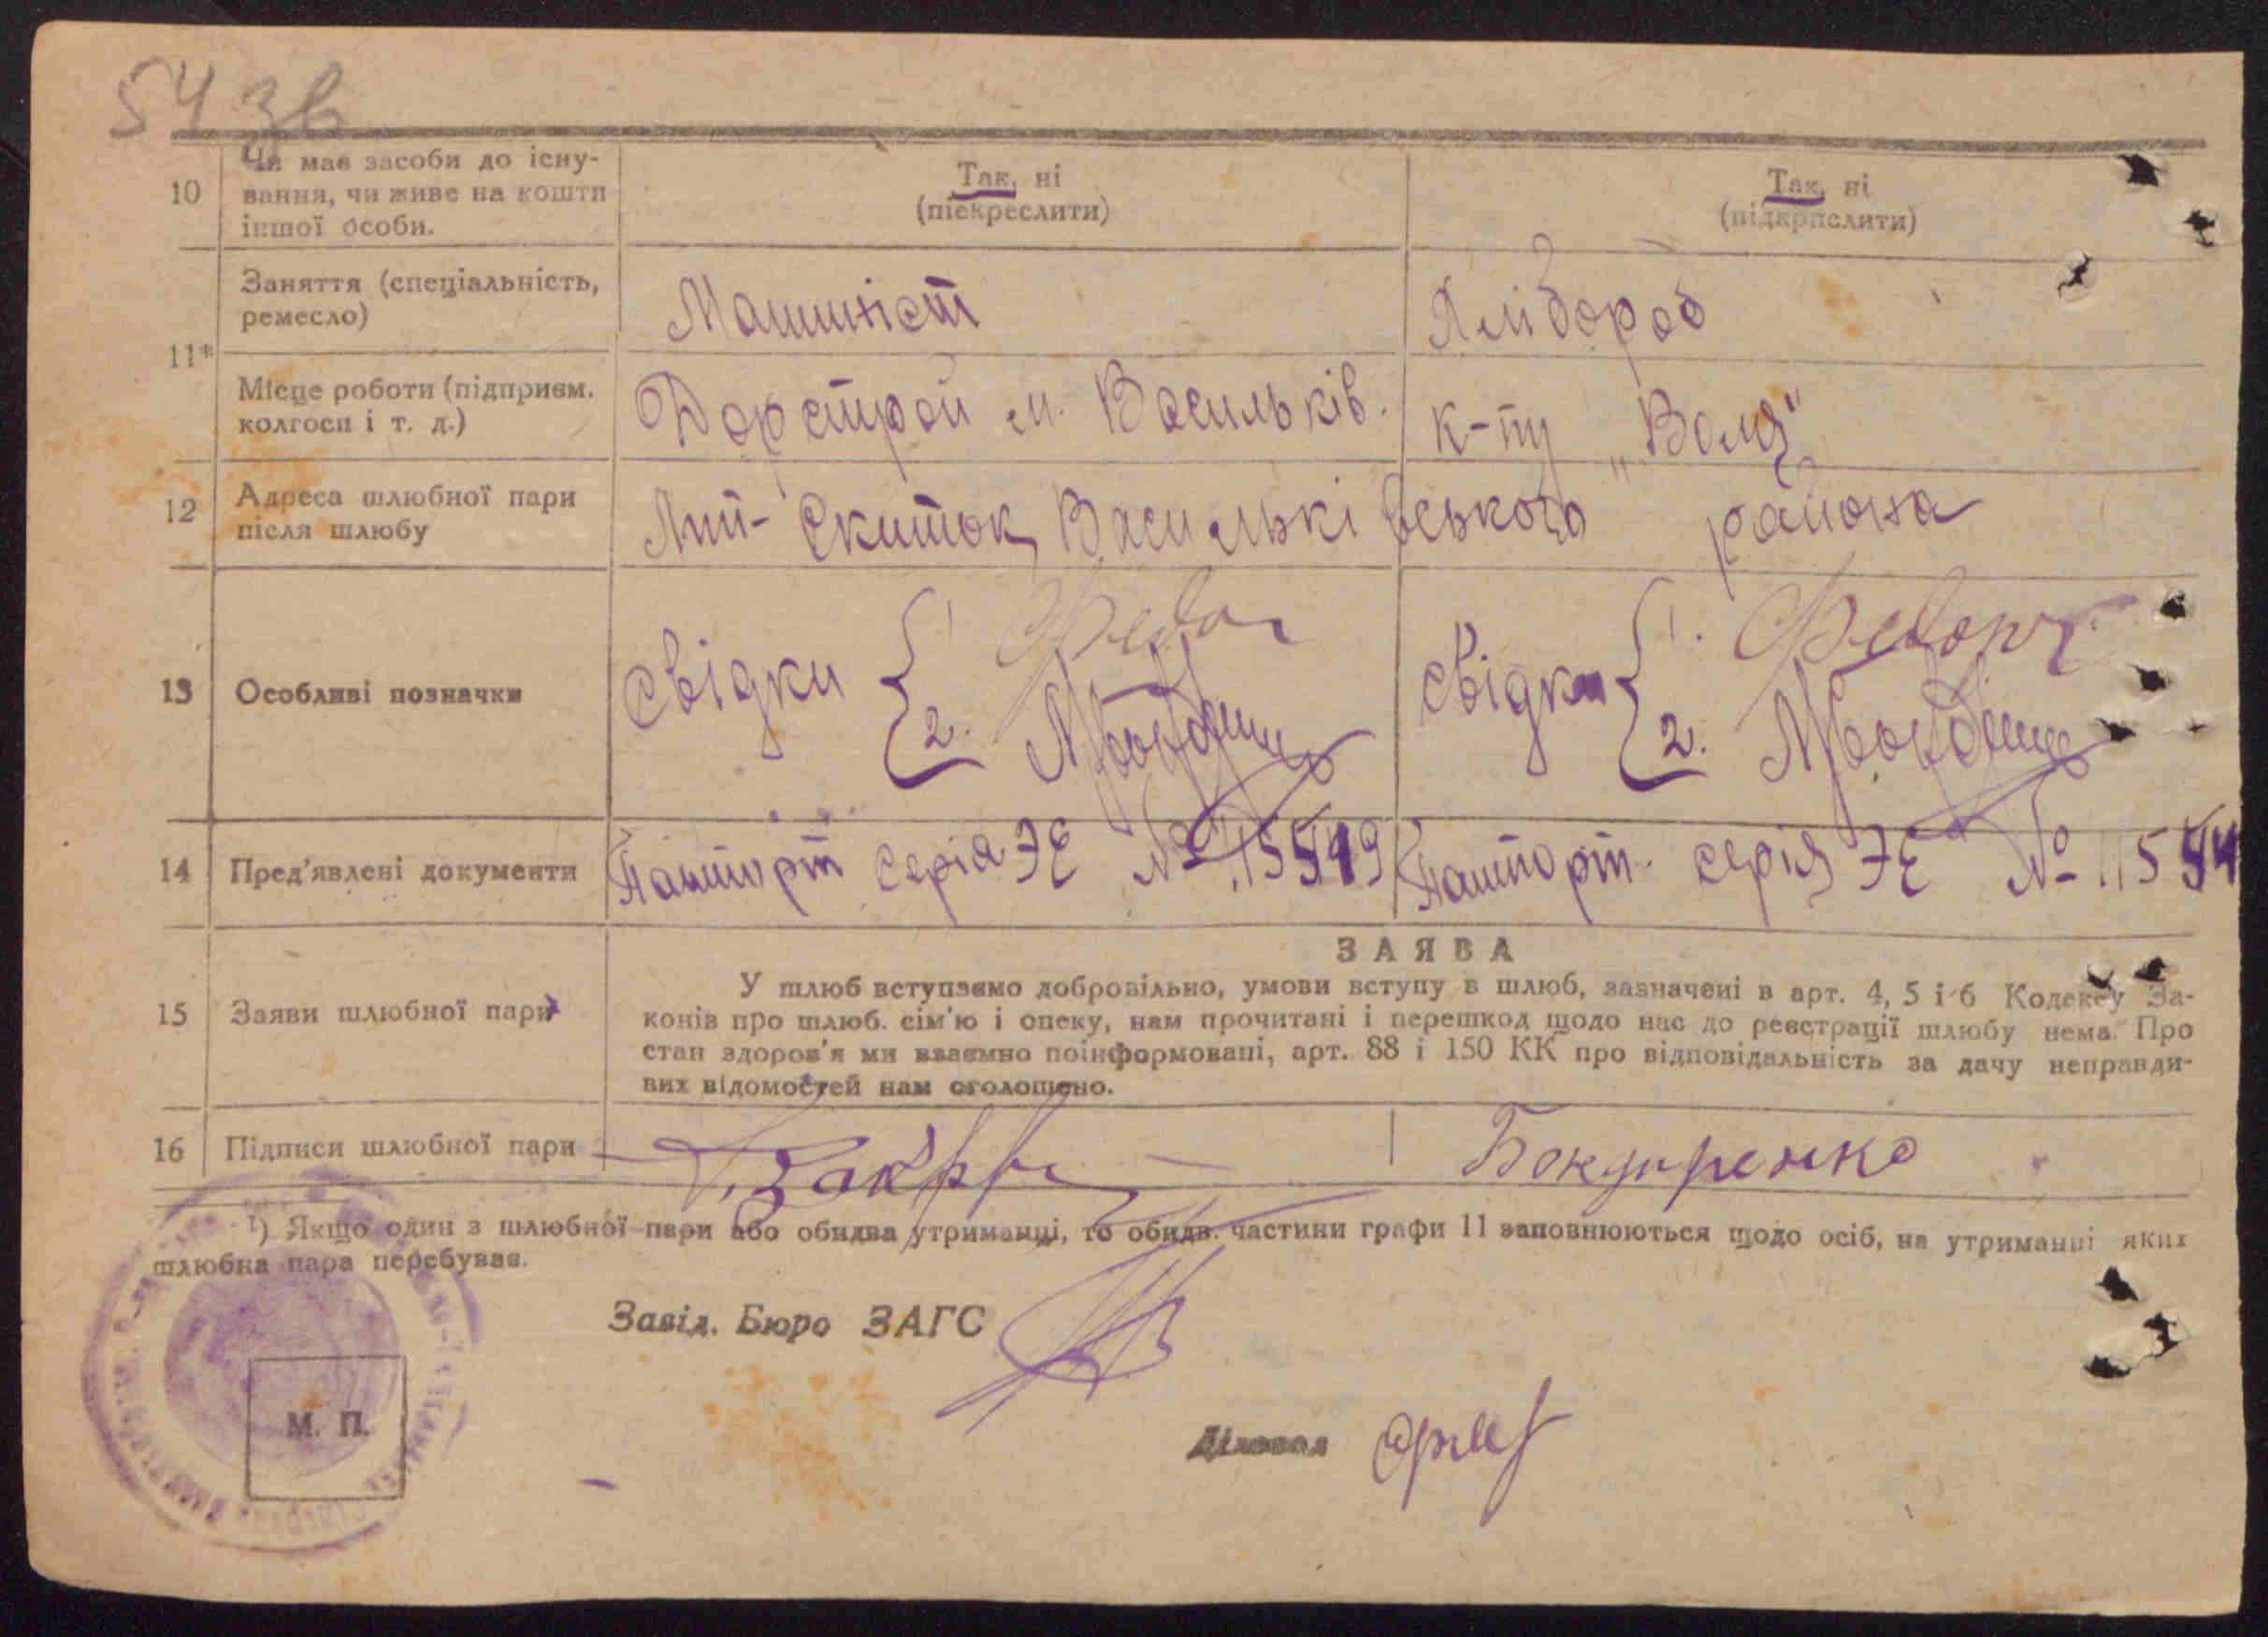 54 зв
10 Чи має засоби до існу-
вання, чи живе на кошти
іншої особи.
Так, ні
(піекреслити)
Так, ні
(підкрпслити)
11*
Заняття (спеціальність,
ремесло)
Машиніст
Хлібороб
Місце роботи (підприєм.
колгосп і т. д.)
Дорстрой м. Васильків.
к-пу „Воля"
12 Адреса шлюбної пари
після шлюбу
Лип- Скиток, Васильківського района
13 Особливі позначки
Свідки { 1
2.
Свідки { 1.
2.
14 Пред'явлені документи
Пашпорт серія ЭЕ №
Пашпорт серія ЭЕ №
15 Заяви шлюбної пари
ЗАЯВА
У шлюб вступаємо добровільно, умови вступу в шлюб, зазначені в арт. 4, 5 і 6 Кодексу За-
конів про шлюб. сім'ю і опеку, нам прочитані і перешкод щодо нас до реєстрації шлюбу нема. Про
стан здоров'я ми взаємно поінформовані, арт. 88 і 150 КК про відповідальність за дачу неправди-
вих відомостей нам оголошено.
16 Підписи шлюбної пари
Бондаренко
¹) Якщо один з шлюбної пари або обидва утриманці, то обидв. частини графи 11 заповнюються щодо осіб, на утриманні яких
шлюбна пара перебуває.
Завід. Бюро ЗАГС
М. П.
Діловод